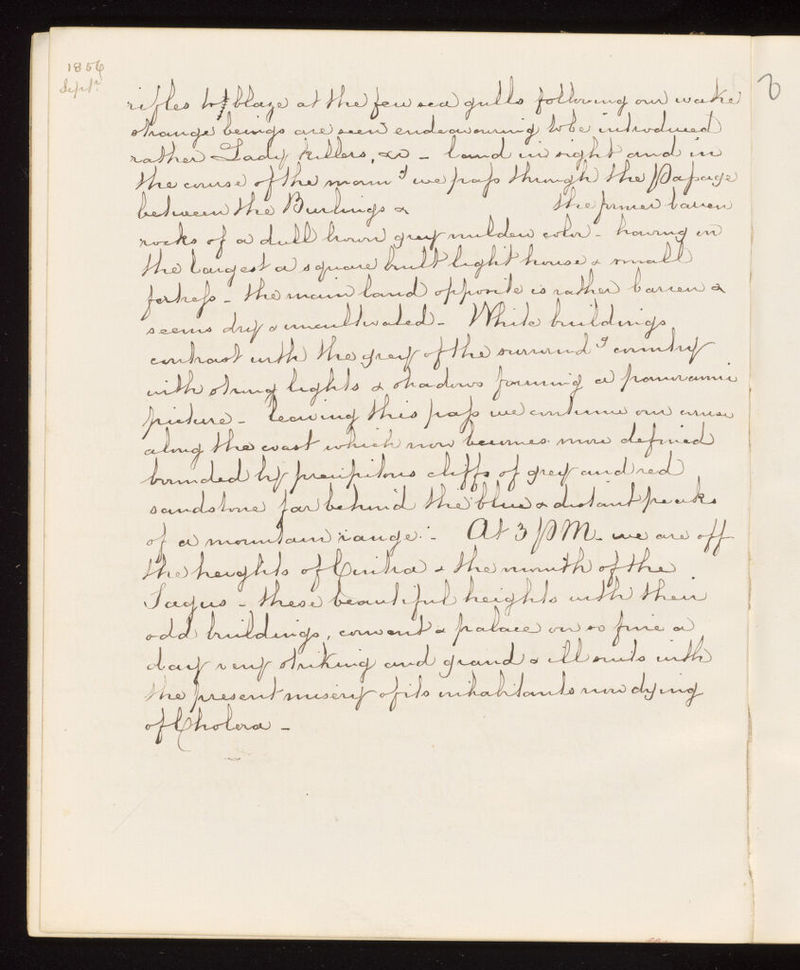 1856
Sept.
rifles to blaze at the few sea gulls following our wake
strange beings are seen endeavouring to be introduced
rather Lady killers, &c - land in sight and in
the course of the morng we pass through the Passage
between the Burlings & the former barren
rocks of a dull brown grey mildew color - having on
the largest a square built light house & small
fortress - the main land opposite is rather barren &
seems dry & uncultivated - White buildings
contrast with the grey of the surroundg country
with strong lights & shadows forming a panoramic
picture - leaving this pass we continue our cruise
along the coast which now becomes more defined
bounded by precipitous cliffs of grey and red
sandstone far behind the blue & distant peaks
of a mountain range - At 3 PM. we are off
the heights of Cintra & the mouth of the
Tagus - these beautiful heights with their
odd buildings, convent & palace on so fine a
day very striking and grand & ill suits with
the present misery of its inhabitants now dying
of Cholera -